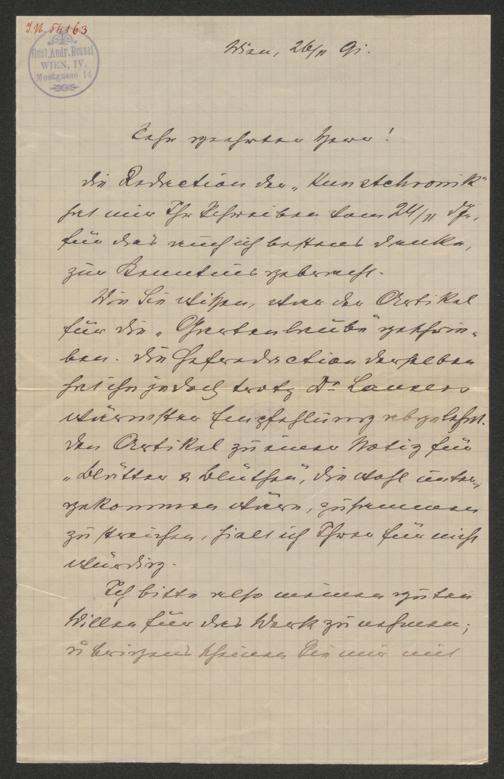 J.N. 54163
Gust. Andr. Ressel
WIEN, IV.
Mostgasse 14
Wien, 26/11 91.
Sehr geehrter Herr!
Die Redaction der „Kunstchronik"
hat mir Ihr Schreiben vom 24/11 d. J.,
für das auch ich bestens danke,
zur Kenntnis gebracht.
Wie Sie wissen, war der Artikel
für die „Gartenlaube" geschrie-
ben. Die Chefredaction derselben
hat ihn jedoch trotz Dr. Lausers
wärmster Empfehlung abgelehnt.
Den Artikel zu einer Notiz für
„Blätter & Blüthen", die wohl unter-
gekommen wäre, zusammen
zu streichen, hielt ich Ihrer für nicht
würdig.
Ich bitte also meinen guten
Willen für das Werk zu nehmen;
übrigens scheinen Sie mir mit